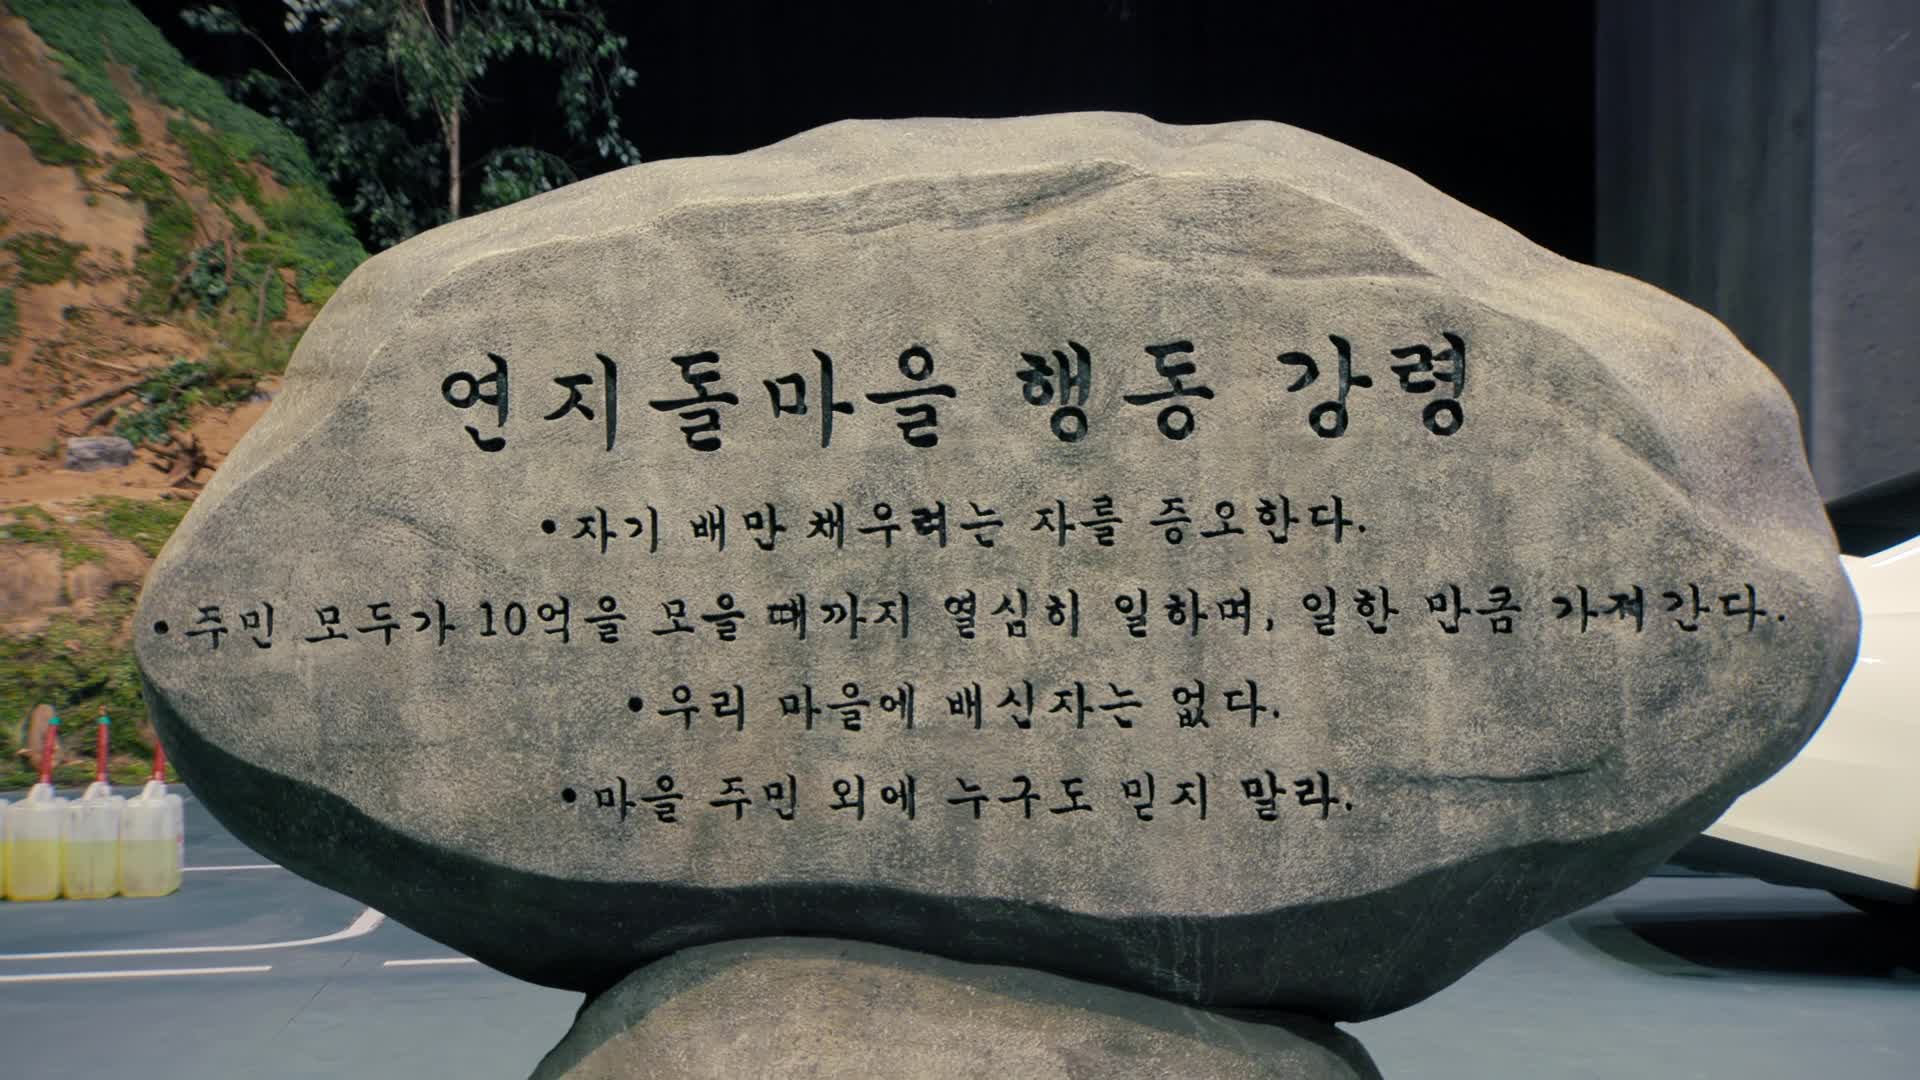 연지돌마을 행동 강령
•자기 배만 채우려는 자를 증오한다.
•주민 모두가 10억을 모을 때까지 열심히 일하며, 일한 만큼 가져간다.
•우리 마을에 배신자는 없다.
•마을 주민 외에 누구도 믿지 말라.